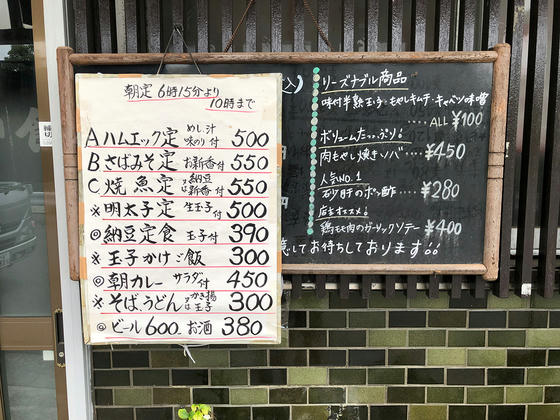 朝定 6時15分より
10時まで
A ハムエッグ定 めし、汁 味のり 付 500
B さばみそ定 お新香付 550
C 焼魚定 納豆 又は 新香 付 550
※ 明太子定 生玉子付 500
◎ 納豆定食 玉子付 390
※ 玉子かけご飯 300
◎ 朝カレー サラダ付 450
※ そば、うどん かき揚 又は 玉子 300
◎ ビール 600 お酒 380
リーズナブル商品
味付半熟玉子・もやしキムチ・キャベツ味噌
ALL ¥100
ボリュームたっぷり!
肉もやし焼きソバ…¥450
人気NO.1
砂肝のポン酢….¥280
店長オススメ!
鶏モモ肉のガーリックソテー
¥400
してお待ちしております!!